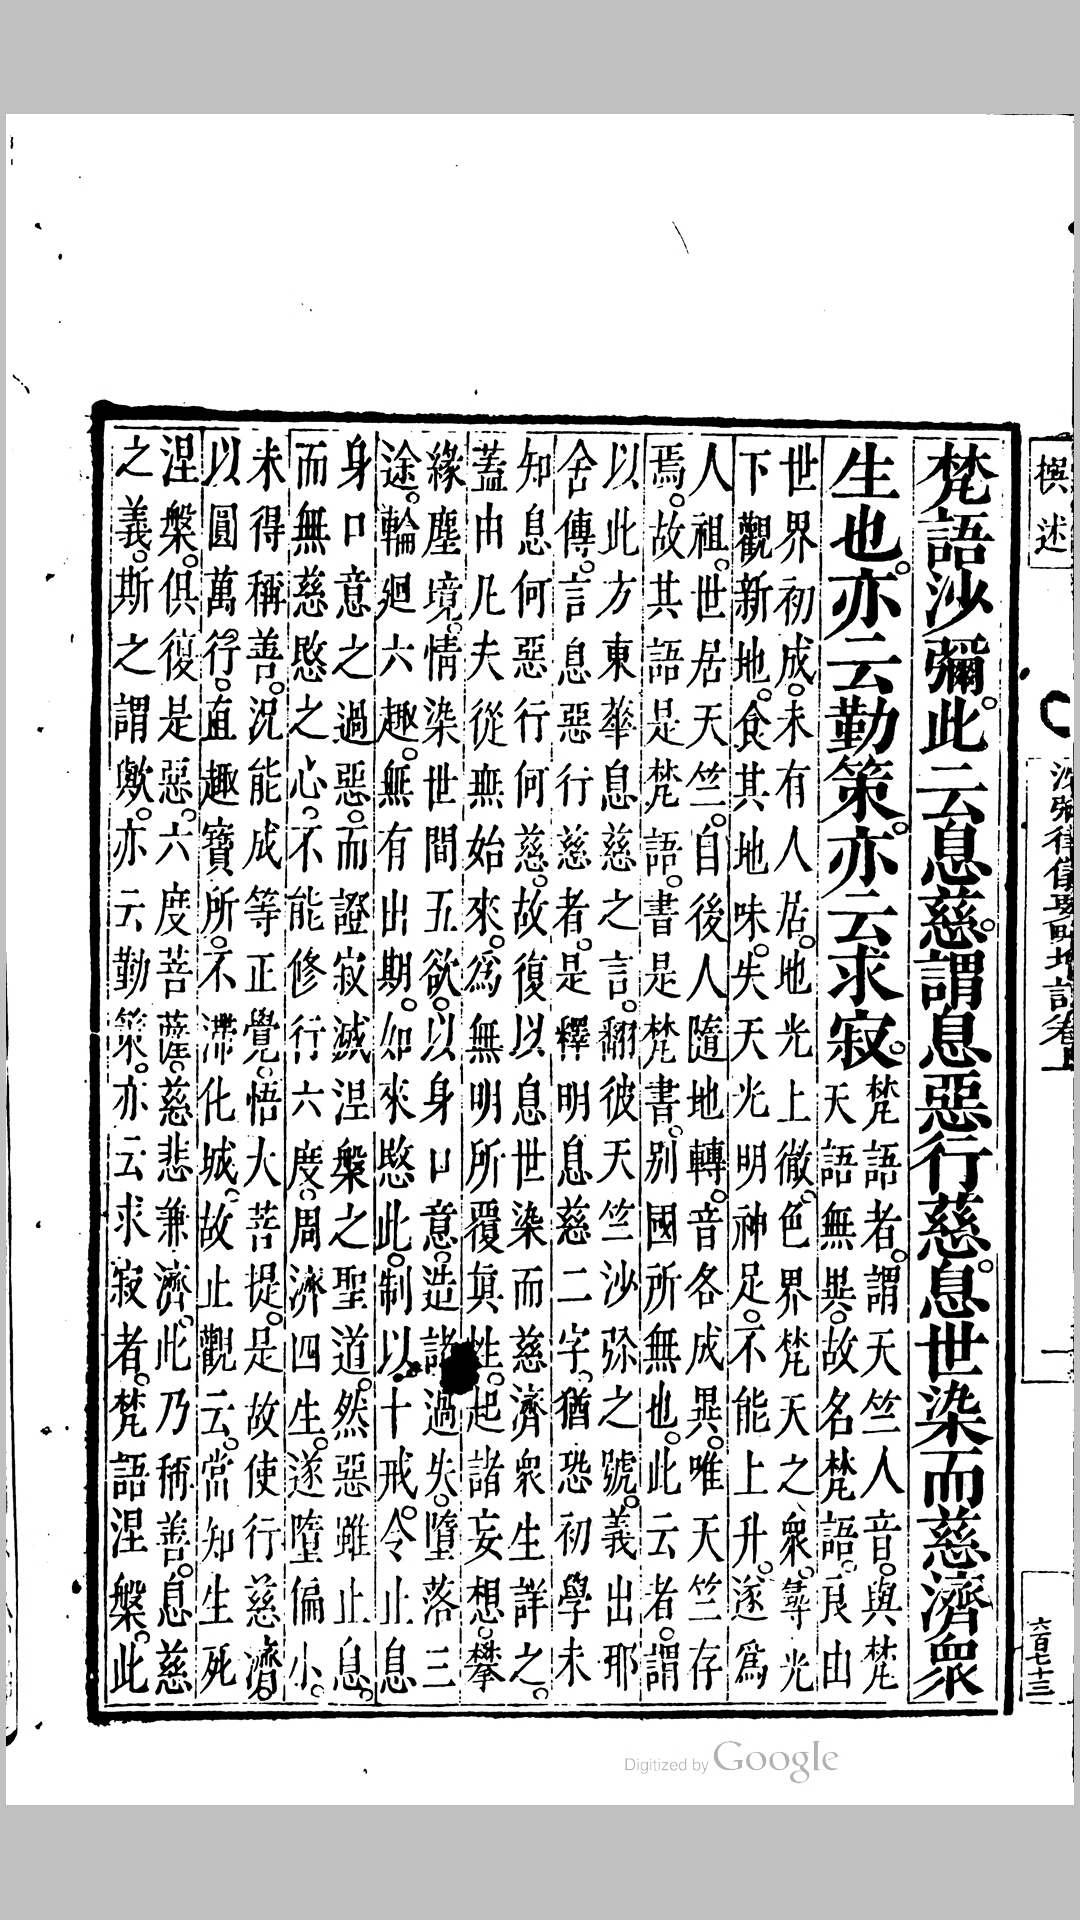 撰述
沙彌律儀要略增註卷上
一
六百七十三
梵語沙彌。此云息慈。謂息惡行慈。息世染而慈濟衆
生也。亦云勤策。亦云求寂。
梵語者。謂天竺人音。與梵
天語無異。故名梵語。良由
世界初成。未有人居。地光上徹。色界梵天之衆。尋光
下觀新地。食其地味。失天光明神足。不能上升。遂爲
人祖。世居天竺。自後人隨地轉。音各成異。唯天竺存
焉。故其語是梵語。書是梵書。別國所無也。此云者。謂
以此方東華息慈之言。翻彼天竺沙弥之號。義出耶
舍傳。言息惡行慈者。是釋明息慈二字。猶恐初學未
知息何惡行何慈。故復以息世染而慈濟衆生詳之。
蓋由凡夫從無始來。爲無明所覆眞性。起諸妄想。攀
緣塵境。情染世間五欲。以身口意。造諸過失。墮落三
途。輪廻六趣。無有出期。如來愍此。制以十戒。令止息
身口意之過惡。而證寂滅涅槃之聖道。然惡雖止息。
而無慈愍之心。不能修行六度。周濟四生。遂墮偏小。
未得稱善。況能成等正覺。悟大菩提。是故使行慈濟。
以圓萬行。直趣寶所。不滯化城。故止觀云。當知生死
涅槃。俱復是惡。六度菩薩。慈悲兼濟。此乃稱善。息慈
之義。斯之謂歟。亦云勤策。亦云求寂者。梵語涅槃。此
Digitized by Google